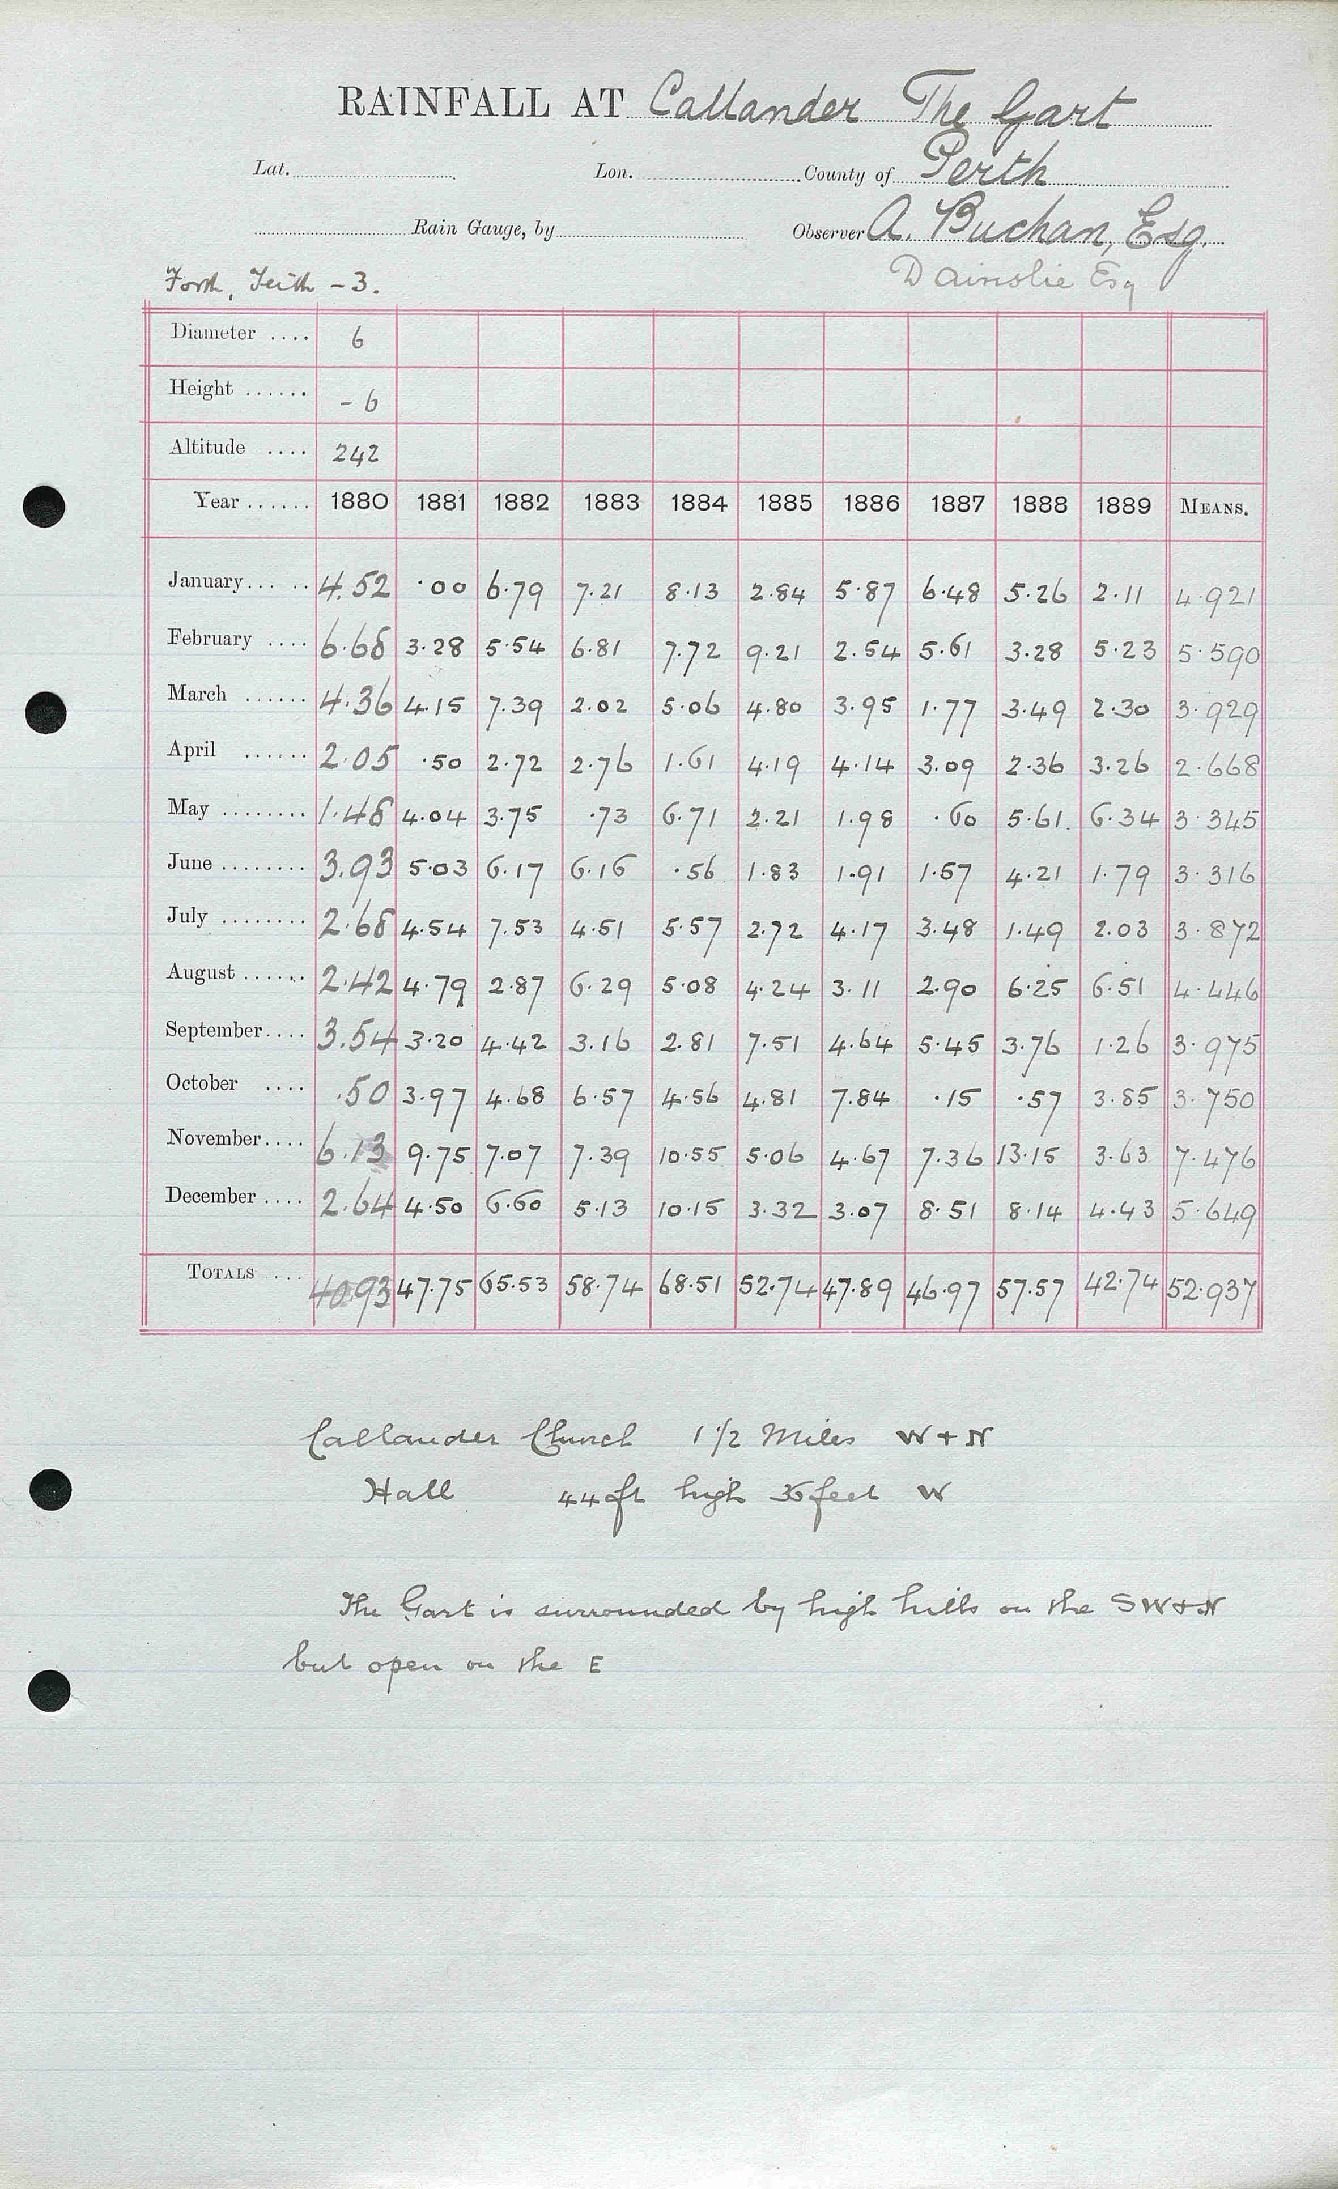 RAINFALL AT Callander The Gart
Lat. Lon. County of Perth
Rain Gauge, by Observer A. Buchan, Esq.
D Ainslie Esq
Forth, Teith - 3.
Diameter .... 6
Height ...... - 6
Altitude .... 242
Year ...... 1880 1881 1882 1883 1884 1885 1886 1887 1888 1889 MEANS.
January... .. 4.52 .00 6.79 7.21 8.13 2.84 5.87 6.48 5.26 2.11 4.921
February .... 6.68 3.28 5.54 6.81 7.72 9.21 2.54 5.61 3.28 5.23 5.590
March ...... 4.36 4.15 7.39 2.02 5.06 4.80 3.95 1.77 3.49 2.30 3.929
April ...... 2.05 .50 2.72 2.76 1.61 4.19 4.14 3.09 2.36 3.26 2.668
May ........ 1.48 4.04 3.75 .73 6.71 2.21 1.98 .60 5.61. 6.34 3.345
June ........ 3.93 5.03 6.17 6.16 .56 1.83 1.91 1.57 4.21 1.79 3.316
July ........ 2.68 4.54 7.53 4.51 5.57 2.72 4.17 3.48 1.49 2.03 3.872
August ...... 2.42 4.79 2.87 6.29 5.08 4.24 3.11 2.90 6.25 6.51 4.446
September.... 3.54 3.20 4.42 3.16 2.81 7.51 4.64 5.45 3.76 1.26 3.975
October .... .50 3.97 4.68 6.57 4.56 4.81 7.84 .15 .57 3.85 3.750
November.... 6.13 9.75 7.07 7.39 10.55 5.06 4.67 7.36 13.15 3.63 7.476
December .... 2.64 4.50 6.60 5.13 10.15 3.32 3.07 8.51 8.14 4.43 5.649
TOTALS ... 40.93 47.75 65.53 58.74 68.51 52.74 47.89 46.97 57.57 42.74 52.937
Callander Church 1 1/2 Miles W + N
Hall 44 ft high 36 feet W
The Gart is surrounded by high hills on the S W + N
but open on the E